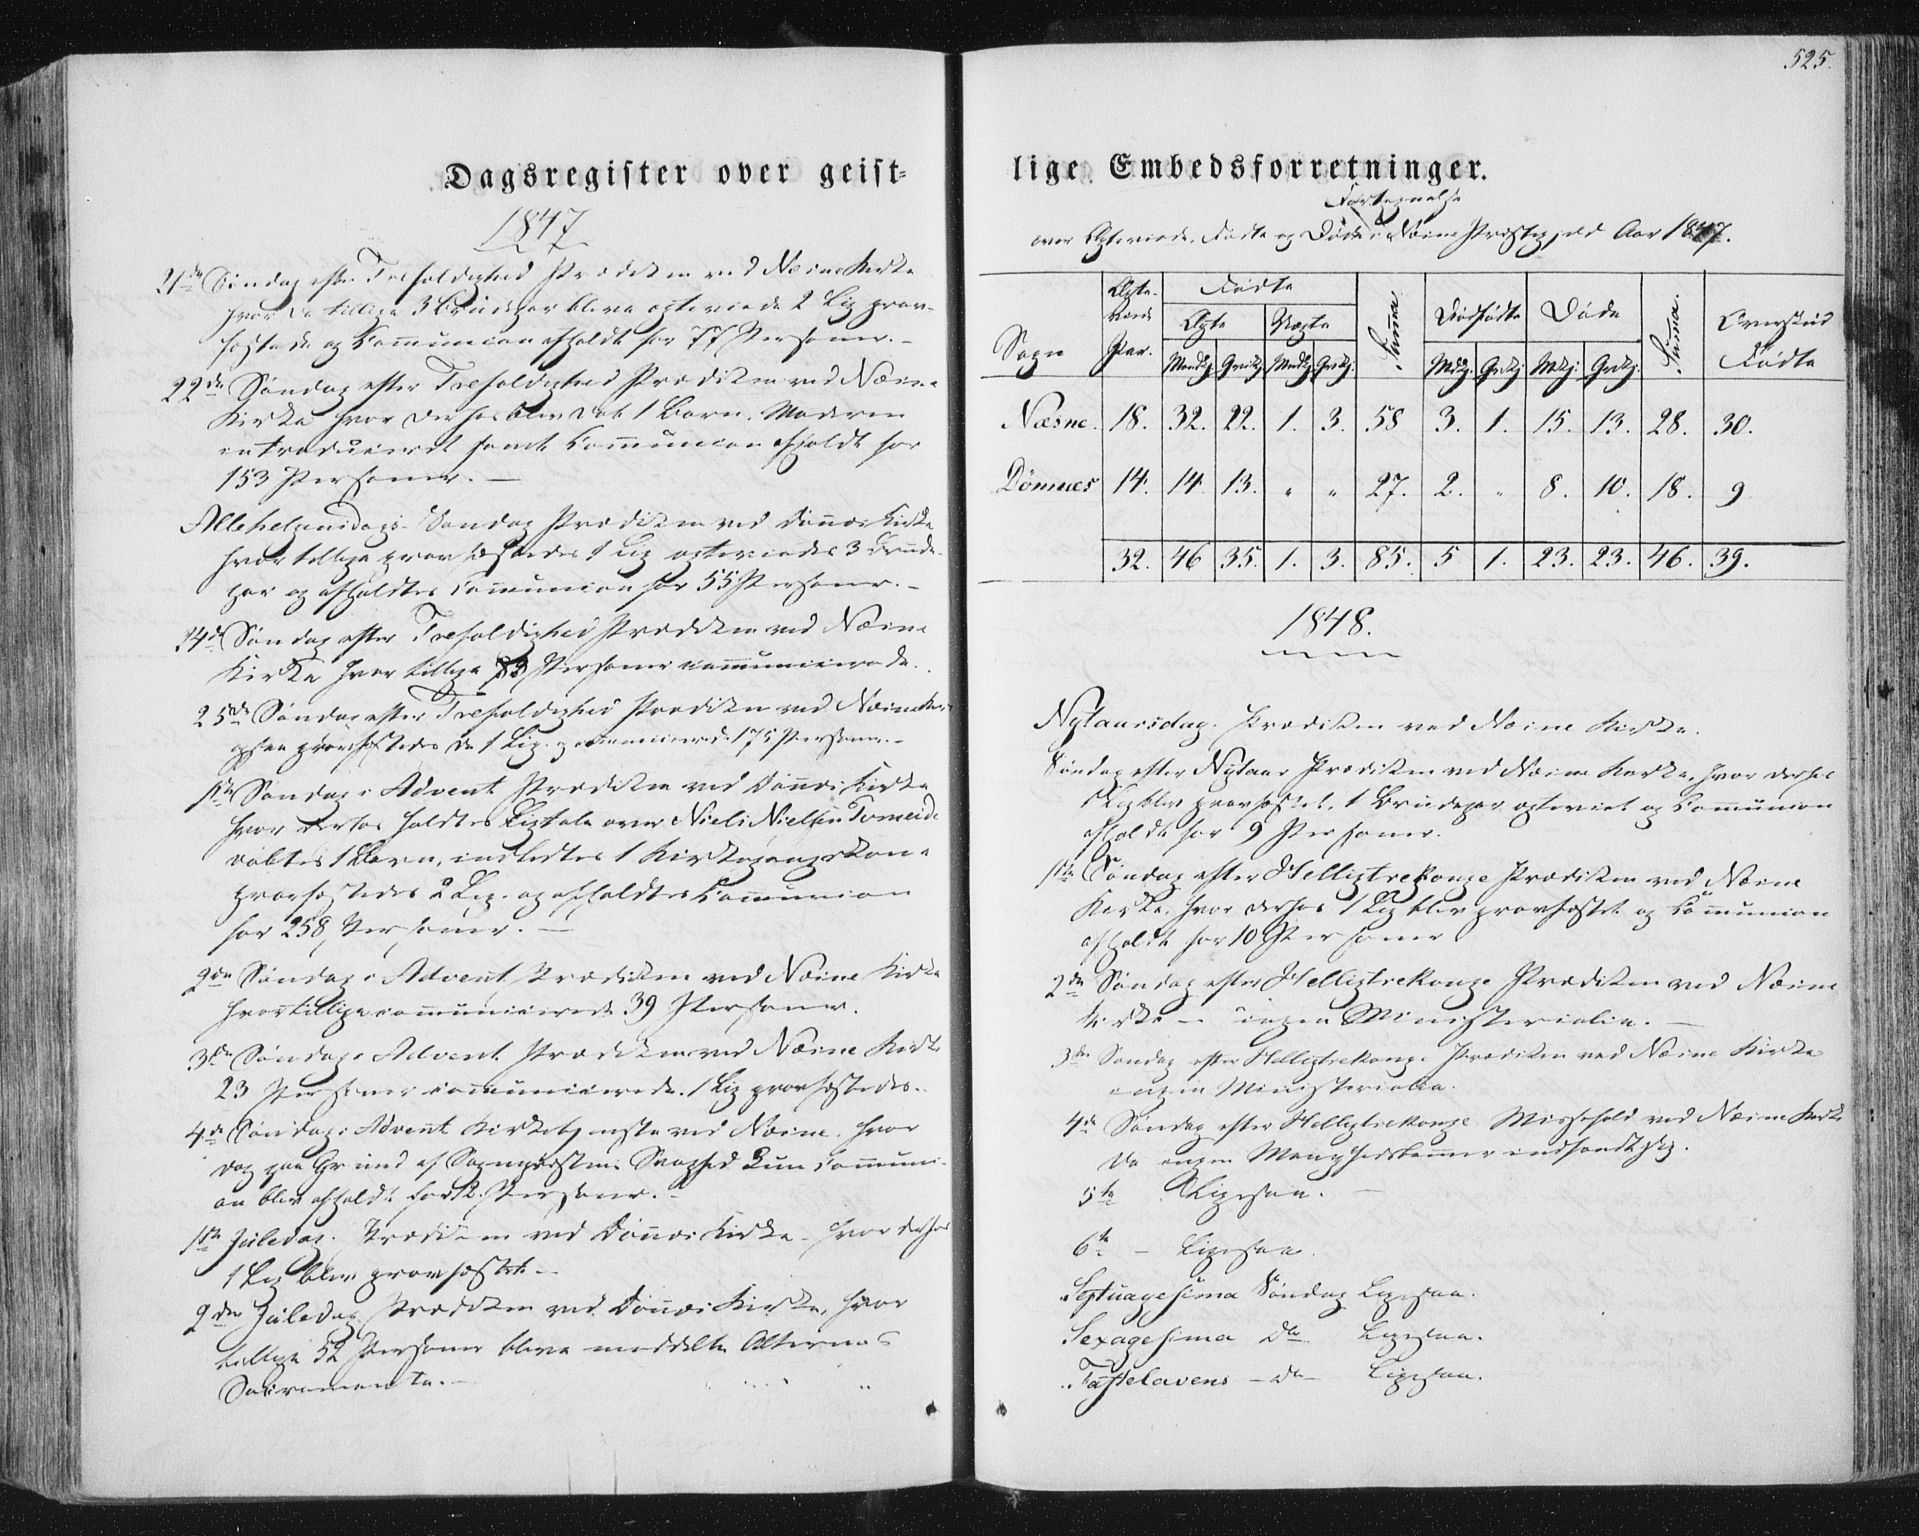 525.
Dagsregister over geist-
1847
21de Søndag efter Trefoldighed Prædiken ved Næsne Kirke
hvor da tillige 3 Brudepar bleve egteviede 2 Lig grav-
fæstede og Communion afholdt for 77 Personer. –
22de Søndag efter Trefoldighed Prædiken ved Næsne
Kirke hvor derhos blev døbt 1 Barn, Moderen
introduceret samt Communion afholdt for
153 Personer. —
Allehelgensdags Søndag Prædiken ved Dønnes Kirke
hvor tillige gravfæstedes 1 Lig egteviedes 3 Brude-
par og afholdtes Communion for 55 Personer. –
24de Søndag efter Trefoldighed Prædiken ved Næsne
Kirke hvor tillige Personer communicerede.
25de Søndag efter Trefoldighed Prædiken ved Næsne Kirke
gravfæstedes 1 Lig og communicerede 175 Personer. –
1ste Søndag i Advent Prædiken ved Dønnes Kirke
hvor derhos holdtes Ligtale over Niels Nielsen
døbtes 1 Barn, indledtes 1 Kirkegangskone
gravfæstedes 2 Lig og afholdtes Communion
for 258 Personer. —
2den Søndag i Advent Prædiken ved Næsne Kirke
hvor tillige communicerede 39 Personer.
3die Søndag i Advent Prædiken ved Næsne Kirke
23 Personer communicerede. 1 Lig gravfæstedes.
4de Søndag i Advent Kirketjeneste ved Næsne, hvor
dog paa Grund af Sognepræstens Svaghed kun Communi-
on blev afholdt for 12 Personer. –
1ste Juledag. Prædiken ved Dønnes Kirke – hvor derhos
1 Lig blev gravfæstet –
2den Juledag Prædiken ved Dønnes Kirke, hvor
tillige 52 Personer bleve meddelte Alterens
Sacramente. –
lige Embedsforretninger.
Fortegnelse
over Egteviede, Fødte og Døde i Næsne Præstegj. Aar 1847.
Sogn Egte-viede Par. Fødte Ægte Uægte Mandkj. Qvindkj. Mandkj. Qvindkj. Suma Dødfødte Mdkj. Qvdkj. Døde Mdkj. Qvdkj. Suma. Overskud Fødte
Næsne. 18. 32. 22. 1. 3. 58 3. 1. 15. 13. 28. 30.
Dönnes 14. 14. 13. " " 27. 2. " 8. 10. 18. 9
32. 46 35. 1. 3. 85. 5 1. 23. 23. 46. 39.
1848.
Nytaarsdag. Prædiken ved Næsne Kirke.
Søndag efter Nytaar Prædiken ved Næsne Kirke, hvor derhos
1 Lig blev gravfæstet, 1 Brudepar egteviet og Communion
afholdt for 9 Personer.
1ste Søndag efter Helligtrekonge Prædiken ved Næsne
Kirke, hvor derhos 1 Lig blev gravfæstet og Communion
afholdt for 10 Personer
2den Søndag efter Helligtrekonge Prædiken ved Næsne
Kirke – ingen Ministerialia. —
3die Søndag efter Helligtrekonge Prædiken ved Næsne Kirke
ingen Ministerialia.
4de Søndag efter Helligtrekonge Messefald ved Næsne Kirke
da ingen Menighedslemmer indfandt sig.
5te Ligesaa. —
6te – Ligesaa.
Septuagesima Søndag Ligesaa.
Sexagesima do Ligesaa.
Fastelavens – do – Ligesaa.